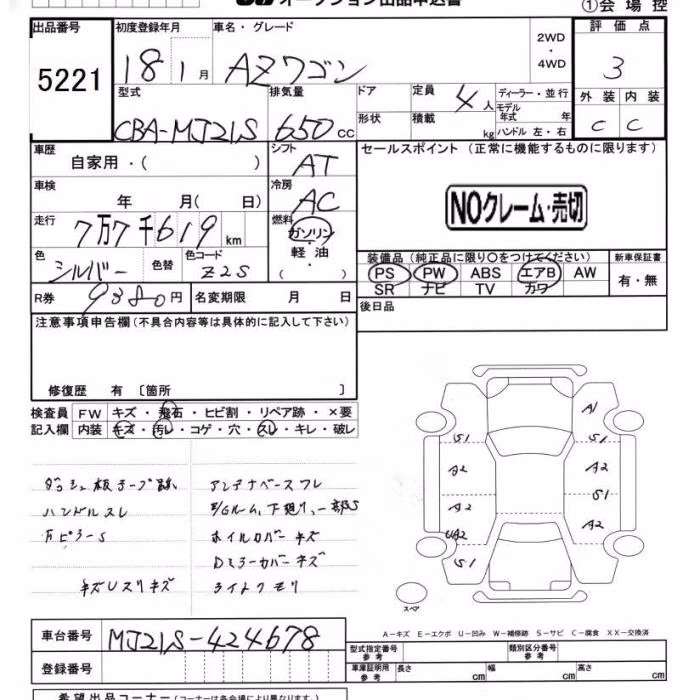 オークション出品申込書 ①会場控
出品番号 5221
初度登録年月 18 1月
車名・グレード AZワゴン
2WD・4WD
評価点 3
外装 C 内装 C
型式 CBA-MJ21S
排気量 650cc
ドア 形状
定員 4人
積載 kg
ディーラー・並行
モデル年式 年
ハンドル 左・右
車歴 自家用・( )
シフト AT
セールスポイント (正常に機能するものに限ります)
NOクレーム・売切
車検 年 月( 日)
冷房 AC
走行 7万7千619km
燃料 ガソリン・軽油・( )
色 シルバー 色替 色コード Z2S
装備品 (純正品に限り○をつけてください) 新車保証書
PS PW ABS エアB AW 有・無
SR ナビ TV カワ
R券 9380円 名変期限 月 日
後日品
注意事項申告欄(不具合内容等は具体的に記入して下さい)
修復歴 有 〔箇所 〕
検査員 FW キズ・飛石・ヒビ割・リペア跡・×要
記入欄 内装 キズ・汚レ・コゲ・穴・スレ・キレ・破レ
ダッシュ板テープ跡 アンテナベースワレ
ハンドルスレ
ホイルカバーキズ
Dミラーカバーキズ
キズUスリキズ ライトクモリ
A1
S1 S1
A2 A2
S1
A2 A2
UA2
S1
スペア
A-キズ E-エクボ U-凹み W-補修跡 S-サビ C-腐食 XX-交換済
車台番号 MJ21S-424678
登録番号
型式指定番号 参考 類別区分番号 参考
車庫証明用 参考 長さ cm 幅 cm 高さ cm
希望出品コーナー (コーナーは各会場により異なります。)